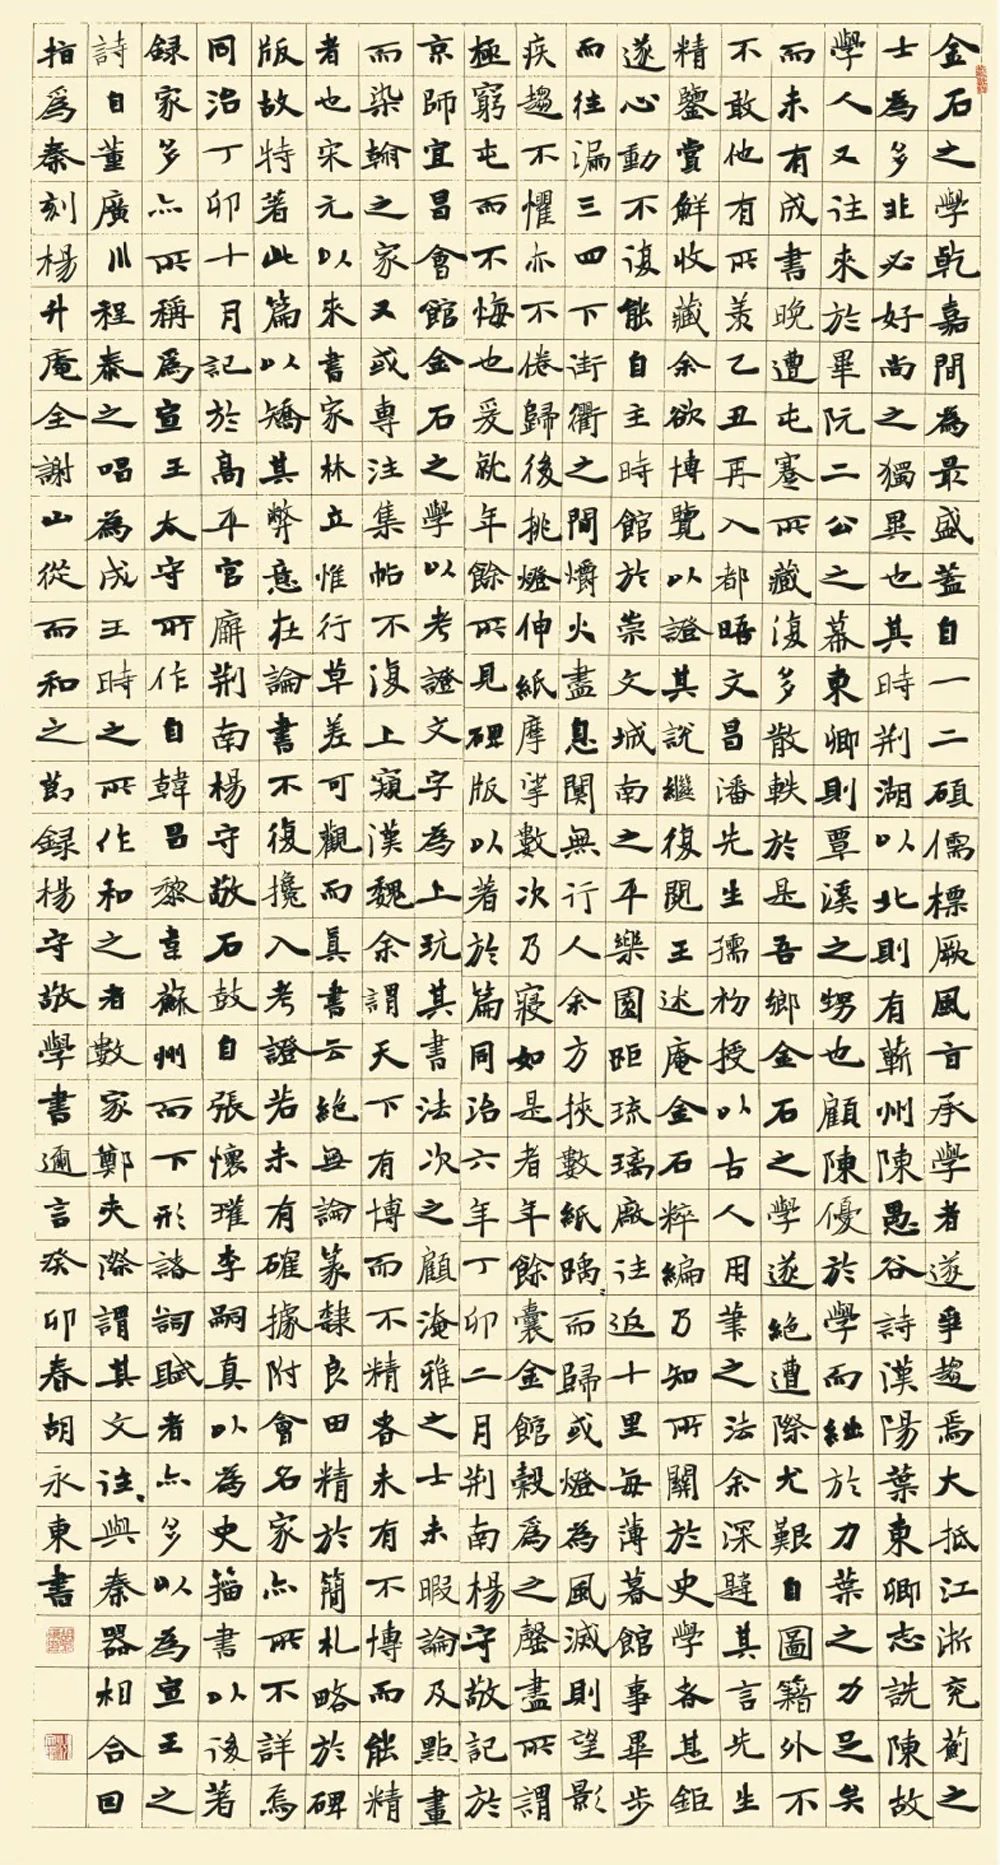 金石之學乾嘉間為最盛蓋自一二碩儒標厥風旨承學者遂爭趨焉大抵江浙兖薊之
士為多非必好尚之獨異也其時荆湖以北則有蘄州陳愚谷詩漢陽葉東卿志詵陳故
學人又往來於畢阮二公之幕東卿則覃溪之甥也顧陳優於學而絀於力葉之力足矣
而未有成書晚遭屯蹇所藏復多散軼於是吾鄉金石之學遂絕遭際尤艱自圖籍外不
不敢他有所羨乙丑再入都晤文昌潘先生孺初授以古人用筆之法余深韙其言先生
精鑒賞鮮收藏余欲博覽以證其說繼復閱王述庵金石粹編乃知所關於史學者甚鉅
遂心動不復能自主時館於崇文城南之平樂園距琉璃廠往返十里每薄暮館事畢步
而往漏三四下街衢之間爝火盡息闃無行人余方挾數紙踽〻而歸或燈為風滅則望影
疾趨不懼亦不倦歸後挑燈伸紙摩挲數次乃寢如是者年餘囊金館穀爲之罄盡所謂
極窮屯而不悔也爰就年餘所見碑版以著於篇同治六年丁卯二月荆南楊守敬記於
京師宜昌會館金石之學以考證文字為上玩其書法次之顧淹雅之士未暇論及點畫
而染翰之家又或専注集帖不復上窺漢魏余謂天下有博而不精者未有不博而能精
者也宋元以來書家林立惟行草差可觀而真書云絕無論篆隸良田精於簡札略於碑
版故特著此篇以矯其弊意在論書不復攙入考證若未有確據附會名家亦所不詳焉
同治丁卯十月記於高平官廨荆南楊守敬石鼓自張懷瓘李嗣真以為史籀書以後著
録家多亦所稱爲宣王太守所作自韓昌黎韋蘇州而下形諸詞賦者亦多以為宣王之
詩自董廣川程泰之唱為成王時之所作和之者數家鄭夾漈謂其文往〻與秦器相合因
指爲秦刻楊升庵全謝山從而和之節録楊守敬學書邇言癸卯春胡永東書